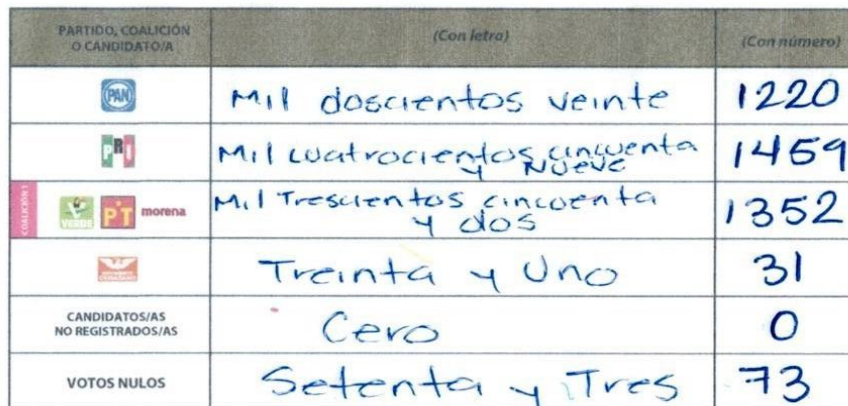 PARTIDO, COALICIÓN
O CANDIDATO/A
(Con letra)
(Con número)
PAN
Mil doscientos veinte
1220
PRI
Mil cuatrocientos cincuenta
y Nueve
1459
COALICIÓN 1
VERDE
PT
morena
Mil Trescientos cincuenta
y dos
1352
Treinta y Uno
31
CANDIDATOS/AS
NO REGISTRADOS/AS
Cero
0
VOTOS NULOS
Setenta y Tres
73